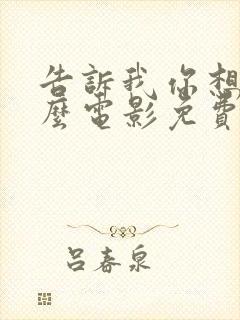 告訴我你想
麼電影免費
呂春泉